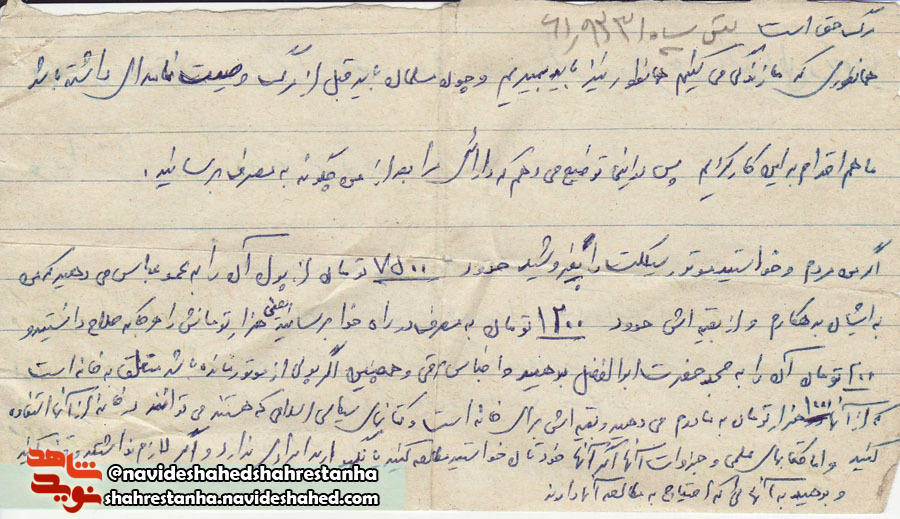 مرگ حق است
همانطوری که ما زندگی می کنیم همانطور نیز باید بمیریم و چون مسلمان باید قبل از مرگ وصیت نامه‌ای داشته باشد
ما هم اقدام به این کار کردیم پس در اینجا توضیح می دهم که دارائیم را بعد از من چگونه به مصرف برسانید.
اگر من مردم و خواستید موتورسیکلت را بفروشید حدود ۷۵۰۰ تومان از پول آن را به عمو عباس می دهید که من
به ایشان بدهکارم و از بقیه اش حدود ۱۲۰۰ تومان به مصرف در راه خدا برسانید یعنی هزار تومانش را هر جا که صلاح دانستید و
۲۰۰ تومان آن را به مسجد حضرت ابوالفضل بدهید و اجناس برقی و همچنین اگر پولی از موتور مانده باشد متعلق به خانه است
که از آنها ۱۰۰۰ هزار تومان به مادرم می دهید و بقیه اش برای خانه است و کتابهای سیاسی اسلامی که هستند می توانند در خانه از آنها استفاده
کنید و اما کتابهای علمی و جزوات آنها اگر آنها خودتان خواستید مطالعه کنید یا نگهدارید ایرادی ندارد و اگر لازم نداشتید
و بدهید به آنهائی که احتیاج به مطالعه آنها دارند
نوید شاهد
@navideshahedshahrestanha
shahrestanha.navideshahed.com